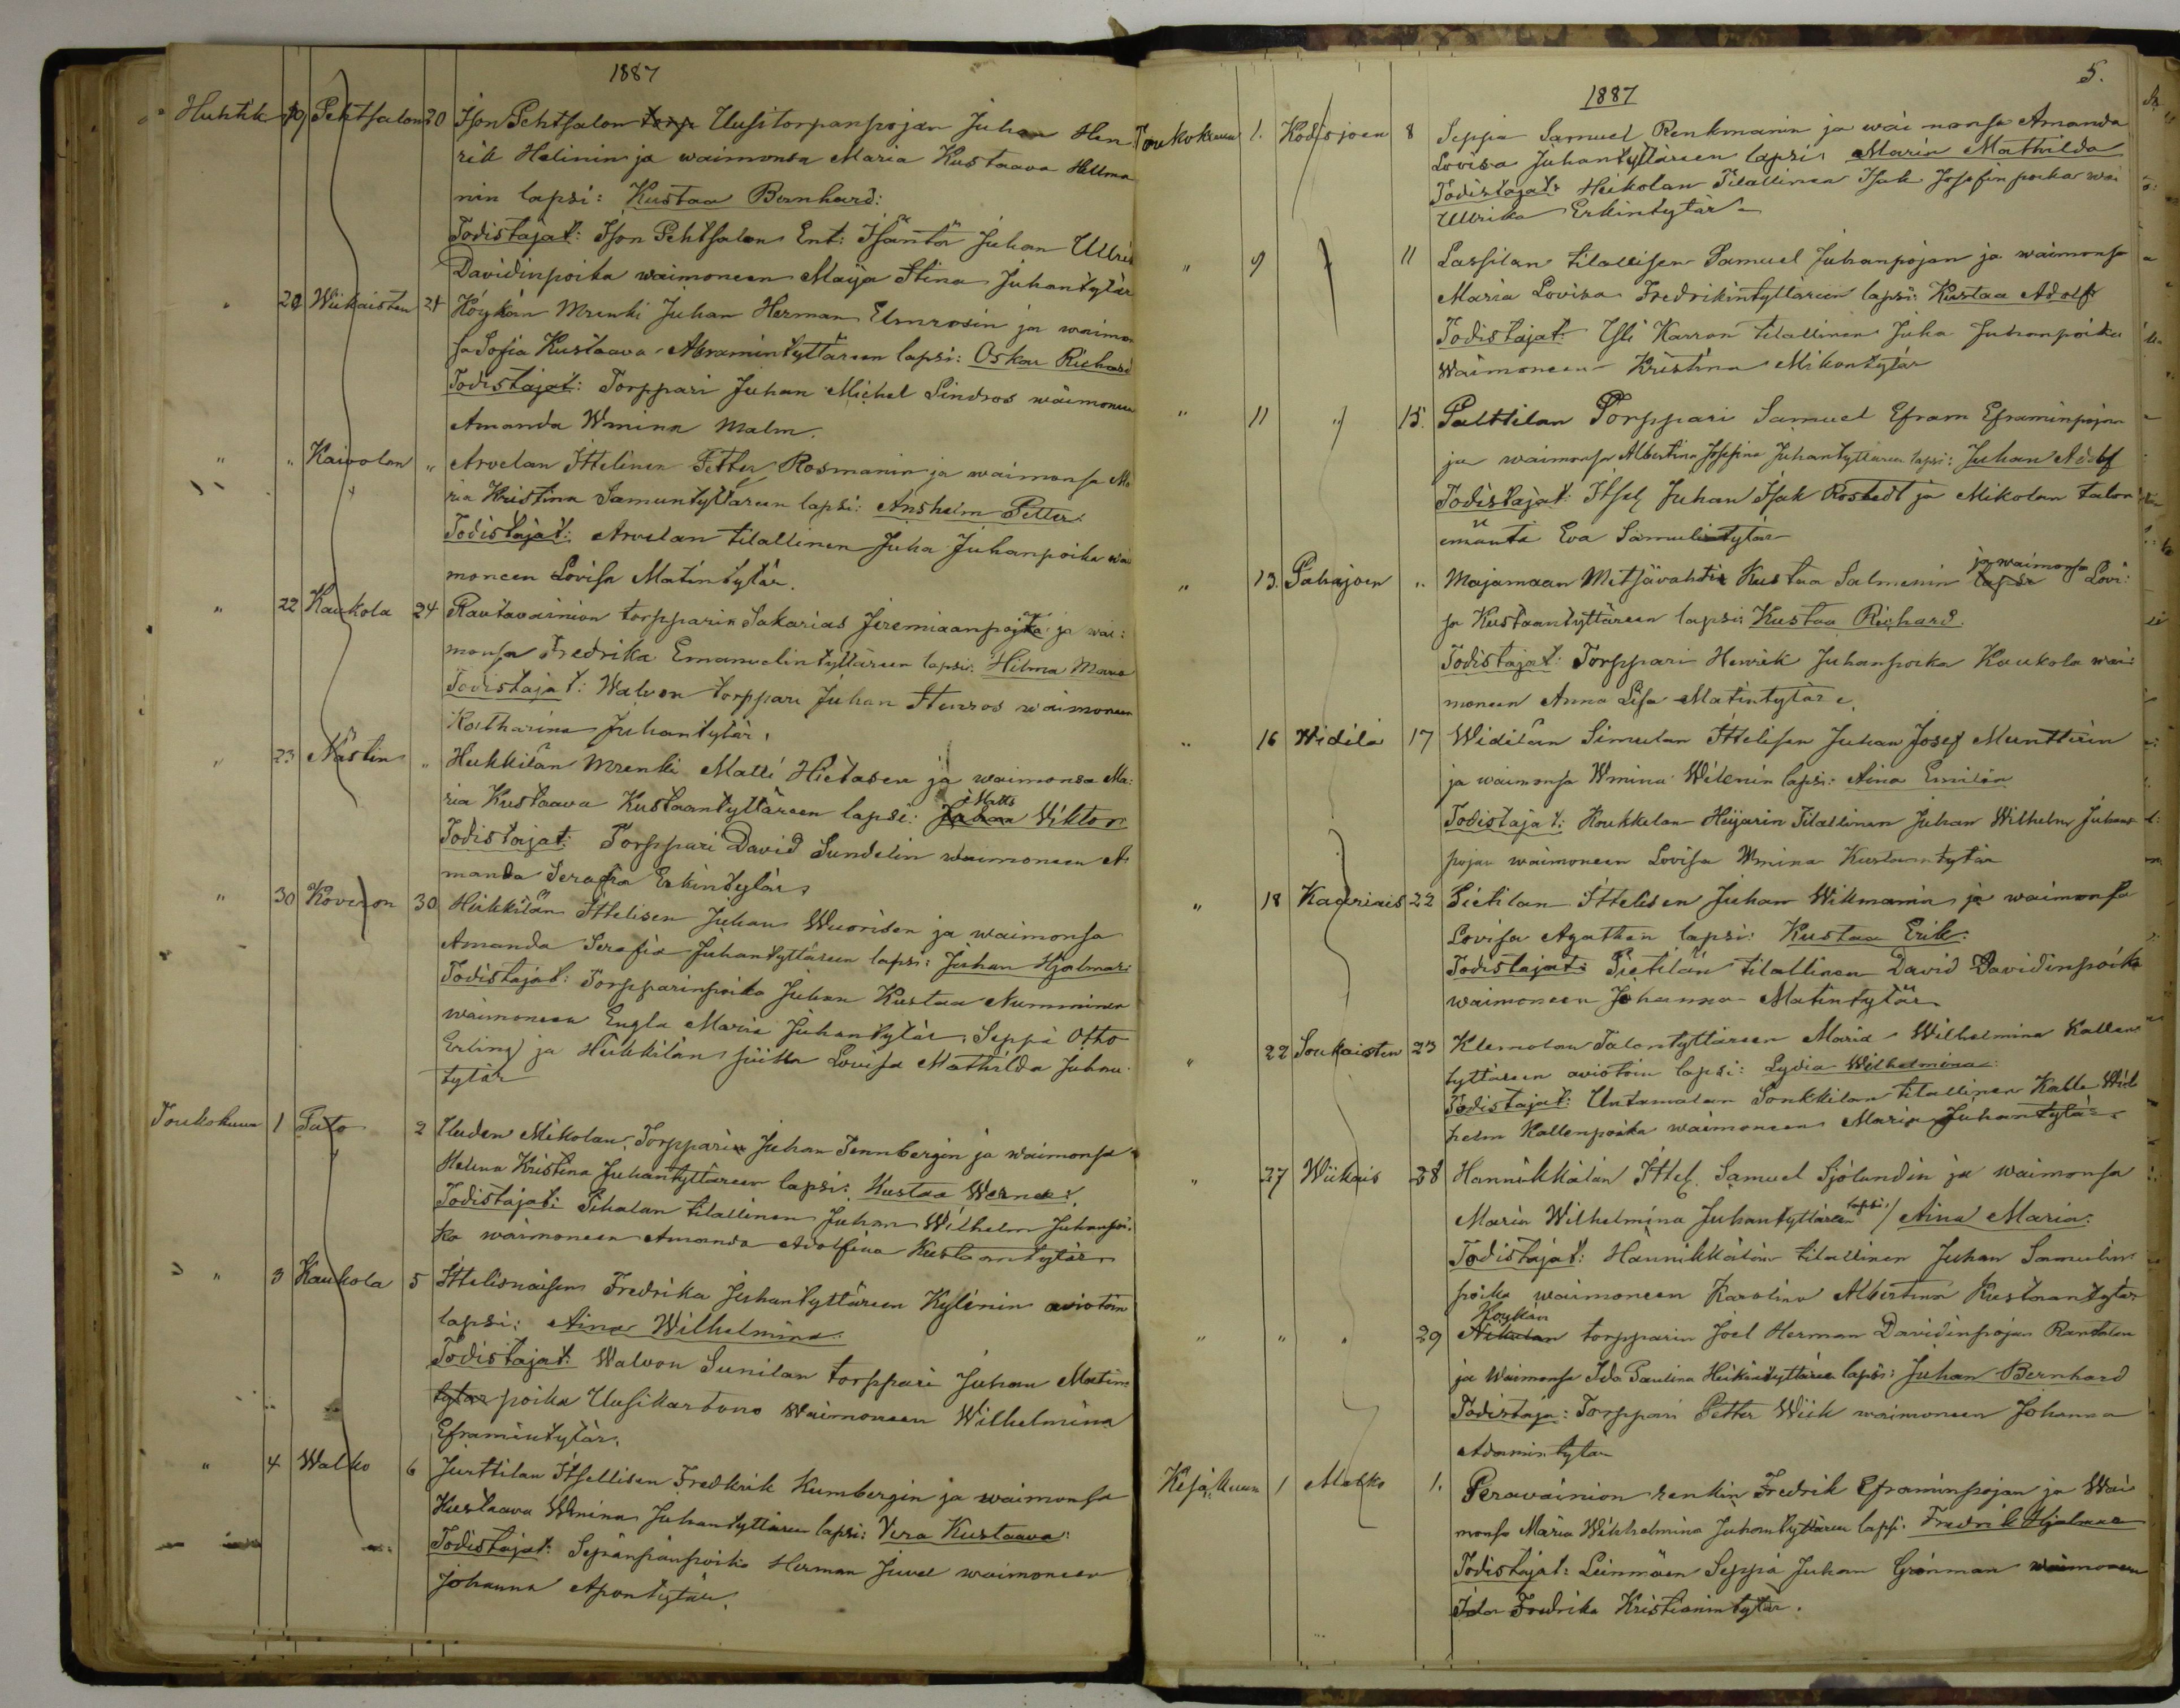 1887
Huhtik 19 Pehtsalon 20 Ison Pehtsalon torp Uusitorpanpojan Juhan Hen
rik Helinin ja waimonsa Maria Kustaava Hellma
nin lapsi: Kustaa Bernhard:
Todistajat: Ison Pehtsalon Ent: Isäntä Juhan Ullrik
Davidinpoika waimoneen Maija Stina Juhantytär
" 20 Wiikaisten 21 Köykän Mrenki Juhan Herman Elmrosin ja waimon
sa Sofia Kustaava Abramintyttären lapsi: Oskar Richard
Todistajat: Torppari Juhan Michel Lindros waimoneen
Amanda Wmina Malm.
" " Kaivolan " Arvelan Ittelinen Petter Rosmanin ja waimonsa Ma
ria Kristina Samuntyttären lapsi: Anshelm Petter
Todistajat: Arvelan tilallinen Juha Juhanpoika wai
moneen Lovisa Matintytär.
" 22 Kaukola 24 Rautavainion torpparin Sakarias Jeremiaanpojka ja wai:
monsa Fredrika Emanuelintyttären lapsi: Hilma Maria
Todistajat: Walvon torppari Juhan Stenros waimoneen
Katharina Juhantytär.
" 23 Nästin " Hukkilan Mrenki Matti Hietasen ja waimonsa Ma:
ria Kustaava Kustaantyttären lapsi: Juhan Matts Viktor
Todistajat: Torppari David Sundelin waimoneen A
manda Serafia Erkintytär
" 30 Köveron 30 Heikkilän Ittelisen Juhan Wuorisen ja waimonsa
Amanda Serafia Juhantyttären lapsi: Juhan Hjalmari
Todistajat: Torpparinpoika Juhan Kustaa Numminen
waimoneen Engla Maria Juhantytär, Seppä Otto
Erling ja Heikkilän piika Lovisa Mathilda Juhan
tytär
Toukokuun 1 Tuto 2 Uuden Mikolan Torpparin Juhan Tennbergin ja waimonsa
Helena Kristina Juhantyttären lapsi: Kustaa Werner.
Todistajat: Pihalan tilallinen Juhan Wilhelm Juhanpoi
ka waimoneen Amanda Adolfina Kustaantytär
" 3 Kaukola 5 Ittelisnaisen Fredrika Juhantyttären Kylénin aviotoin
lapsi: Aina Wilhelmina.
Todistajat: Walvon Sunilan torppari Juhan Matin
tytar poika Uusikartano Waimoneen Wilhelmina
Eframintytär.
" 4 Walko 6 Jurttilan Itsellisen Fredkrik Kumbergin ja waimonsa
Kustaava Wmina Juhantyttären lapsi: Vera Kustaava:
Todistajat: Herman Juvel waimoneen
Johanna Apontytär.
5.
1887
Toukokuun 1. Kodisjoen 8 Seppä Samuel Renkmanin ja wai monsa Amanda
Lovisa Juhantyttären lapsi: Maria Mathilda
Todistajat: Heikolan Tilallinen Isak Josefinpoika wai
Ullrika Erkintytär
" 9 " 11 Lassilan tilallisen Samuel Juhanpojan ja waimonsa
Maria Lovisa Fredrikintyttären lapsi: Kustaa Adolf
Todistajat: Karran tilallinen Juha Juhanpoika
Waimoneen Kristina Mikontytär
" 11 " 15. Palttilan Torppari Samuel Efram Eframinpojan
ja waimonsa Albertina Josefina Juhantyttären lapsi: Juhan Adolf
Todistajat: Itsel Juhan Isak Rostedt ja Mikolan talon
emäntä Eva Samulintytär
" 13. Pahajoen " Majamaan Metsävahti Kustaa Salmenin lapsi ja waimonsa Lovi:
sa Kustaantyttären lapsi Kustaa Richard.
Todistajat: Torppari Henrik Juhanpoika Kaukola wai:
moneen Anna Lisa Matintytär
" 16 Widilä 17 Widilän Simulan Ittelisen Juhan Josef Munttérin
ja waimonsa Wmina Wilenin lapsi: Aina Emilia
Todistajat: Koukkelan Heijarin Tilallinen Juhan Wilhelm Juhan
pojan waimoneen Lovisa Wmina Kustaantytär
" 18 Kaariais 22 Pietilan Ittelisen Juhan Wikmanin ja waimonsa
Lovisa Agathan lapsi: Kustaa Erik.
Todistajat: Pietilän tilallinen David Davidinpoika
waimoneen Johanna Matintytär
" 22 Soukaisten 23 Klemolan Talontyttären Maria Wilhelmina Kallen
tyttären aviotoin lapsi: Lydia Wilhelmina:
Todistajat: Untamalan Sonkkilan tilallinen Kalle Wil
helm Kallenpoika waimoneen Maria Juhantytär
" 27 Wiikais 28 Hannikkälän Ittel. Samuel Sjölundin ja waimonsa
Maria Wilhelmina Juhantyttären lapsi: / Aina Maria.
Todistajat: Hannikkälän tilallinen Juhan Samulin
poika waimoneen Karolina Albertina Kustaantytär
" " " 29 Nikulan Köykän torpparin Joel Herman Davidinpojan Rantalan
ja Waimonsa Ida Paulina Heikintyttären lapsi: Juhan Bernhard
Todistaja: Torppari Petter Wiik waimoneen Johanna
Adamintytär
Kesäkuun 1 Malko 1. Peravainion renkin Fredrik Eframinpojan ja Wai
monsa Maria Wilhelmina Juhantyttären lapsi: Fredrik Hjalmar
Todistajat: Leinmäen Seppä Juhan Grönman waimoneen
Ida Fredrika Kristianintytär.